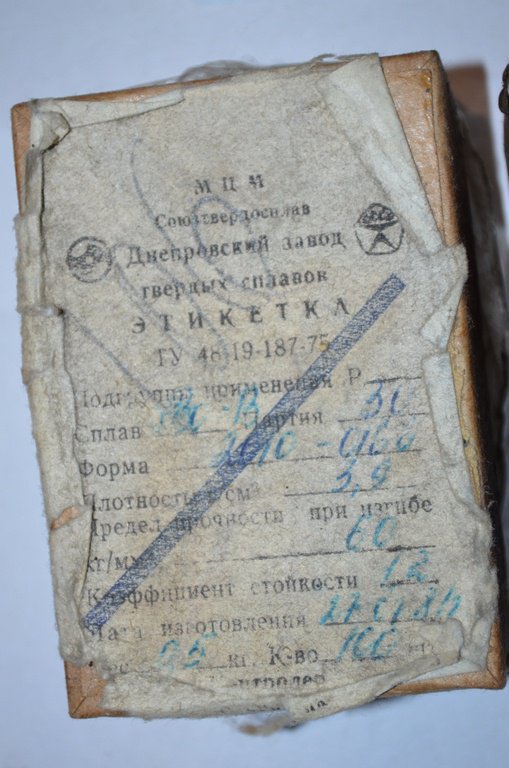 МЦМ
Союзтвердосплав
Днепровский завод
твердых сплавов
ЭТИКЕТКА
ТУ 48-19-187-75
Подгруппа применения Р
Сплав Партия 30
Форма
Плотность г/см³ 5,9
Предел прочности при изгибе
кг/мм 60
Коэффициент стойкости 1,2
Дата изготовления
Вес 0,5 кг. К-во 100 шт
Контролер